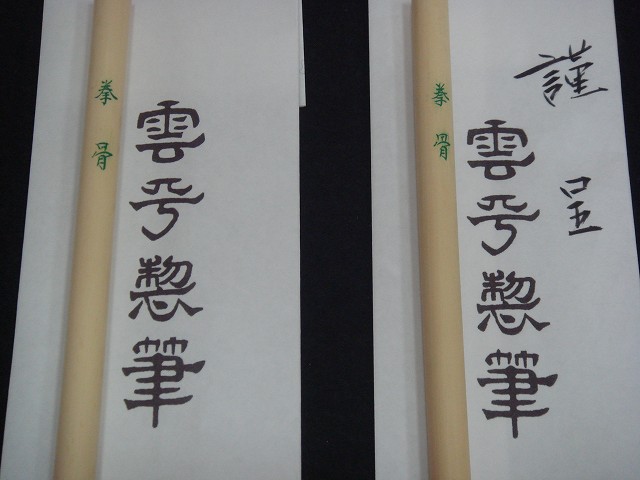 拳骨
雲平製筆
拳骨
雲平製筆
謹呈